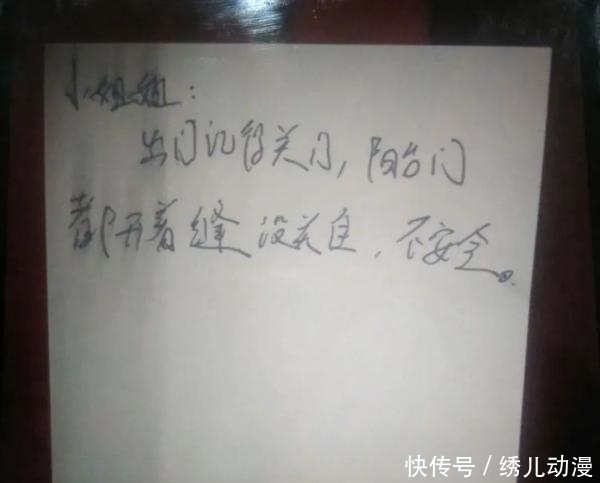 小姐姐：
出门记得关门，阳台门
都开着缝没关自，不安全。
快传号／绣儿动漫